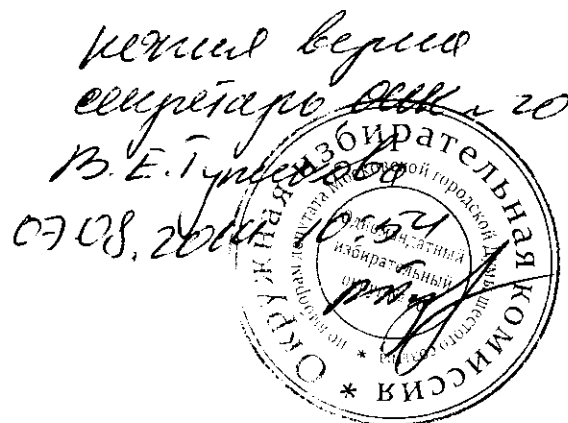 копия верна
секретарь ОИК № 20
В. Е.
07.08.2014 10:54
Окружная избирательная комиссия *
по выборам депутата Московской городской Думы шестого созыва *
одномандатный
избирательный
округ